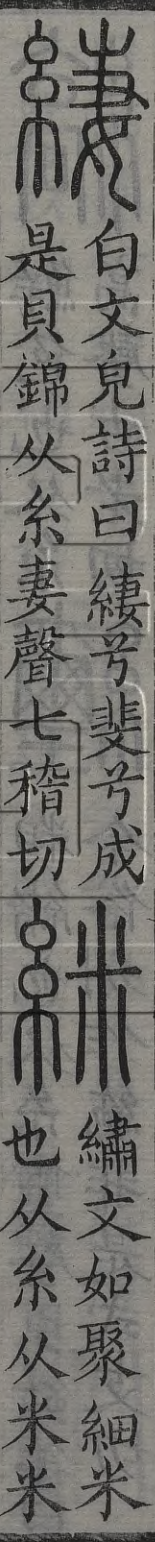 緀
白文皃詩曰緀兮斐兮成
是貝錦从糸妻聲七稽切
䋛
繡文如聚細米
也从糸从米米